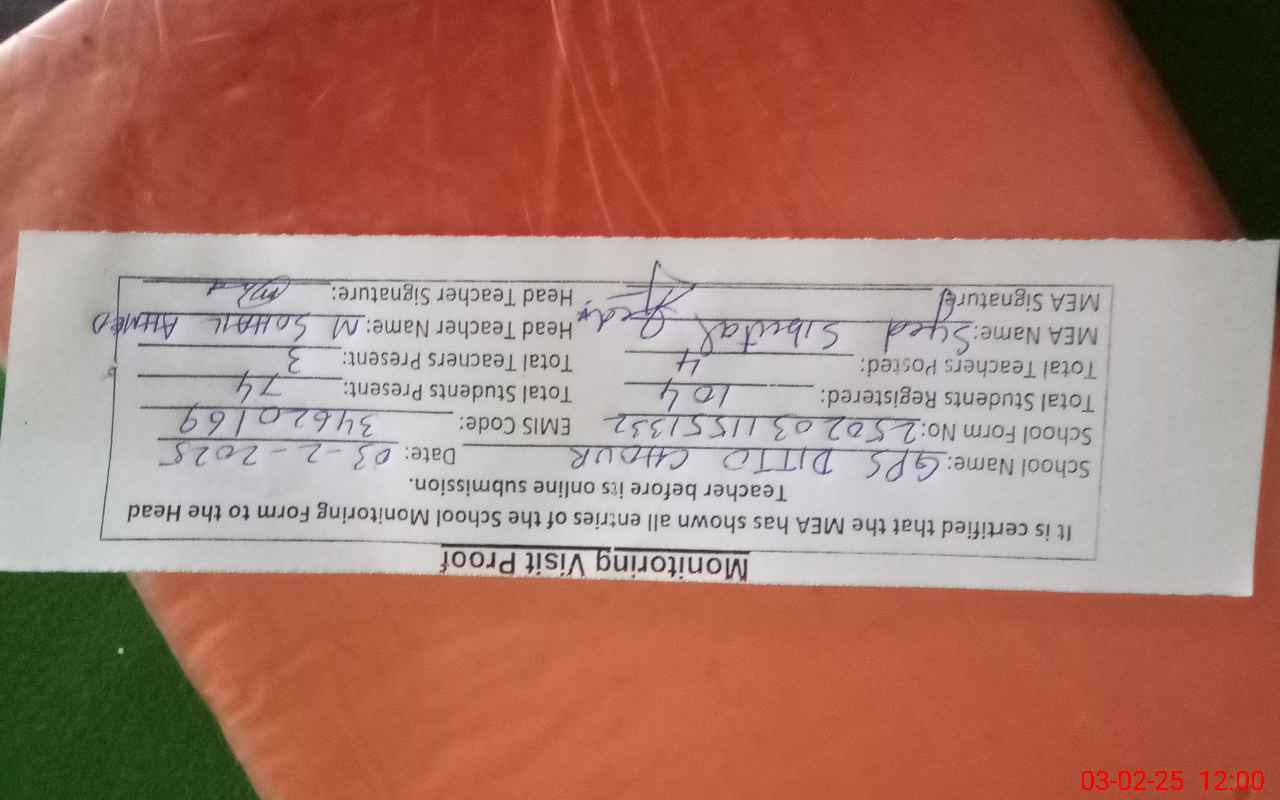 Monitoring Visit Proof
It is certified that the MEA has shown all entries of the School Monitoring Form to the Head
Teacher before its online submission.
School Name: GPS DITTO CHOUR Date: 03-2-2025
School Form No: 25020311551332 EMIS Code: 34620169
Total Students Registered: 104 Total Students Present: 74
Total Teachers Posted: 4 Total Teachers Present: 3
MEA Name: Syed Head Teacher Name: M SOHAIL AHMED
MEA Signature Head Teacher Signature:
03-02-25 12:00